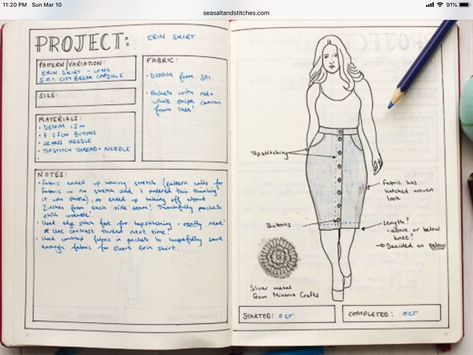 11:20 PM Sun Mar 10
91%
seasaltandstitches.com
PROJECT:
ERIN SKIRT
PATTERN/VARIATION:
ERIN SKIRT - LONG
S.O.I CITY BREAK CAPSULE
SIZE:
MATERIALS:
• DENIM 1.5m
• 8 2.5cm BUTTONS
• JEANS NEEDLE
• TOPSTITCH THREAD + NEEDLE
FABRIC:
• DENIM from SOI
• Pockets with red +
white
from
NOTES:
• Fabric ended up having stretch (pattern calls for
fabric in no stretch and I ordered this thinking
it was
), so ended up taking off about
2 inches from each side seam! Thankfully pockets
still useable!
• Used edge stitch foot for topstitching - really neat!
* Use contrast thread next time!
• Used contrast fabric in pockets to hopefully save
enough fabric for short Erin skirt.
Topstitching
Fabric has
hatched woven
look
Buttons
Length?
- above or below
knee?
→ Decided on below
Silver metal
from Minerva Crafts
STARTED: OCT
COMPLETED: OCT